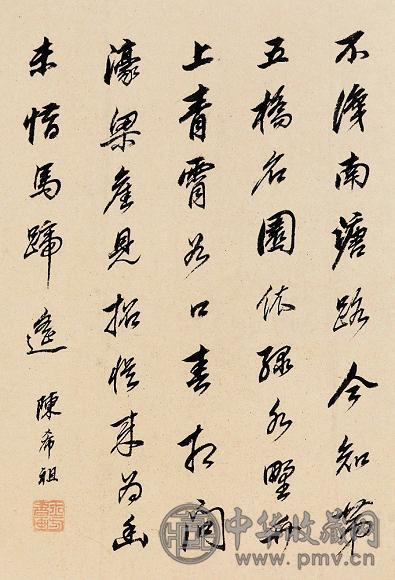 不識南塘路今知第
五橋名園依綠水野竹
上青霄谷口相
濠梁見招為幽
未惜馬蹄遙 陳希祖
中华收藏网
www.pmv.cn